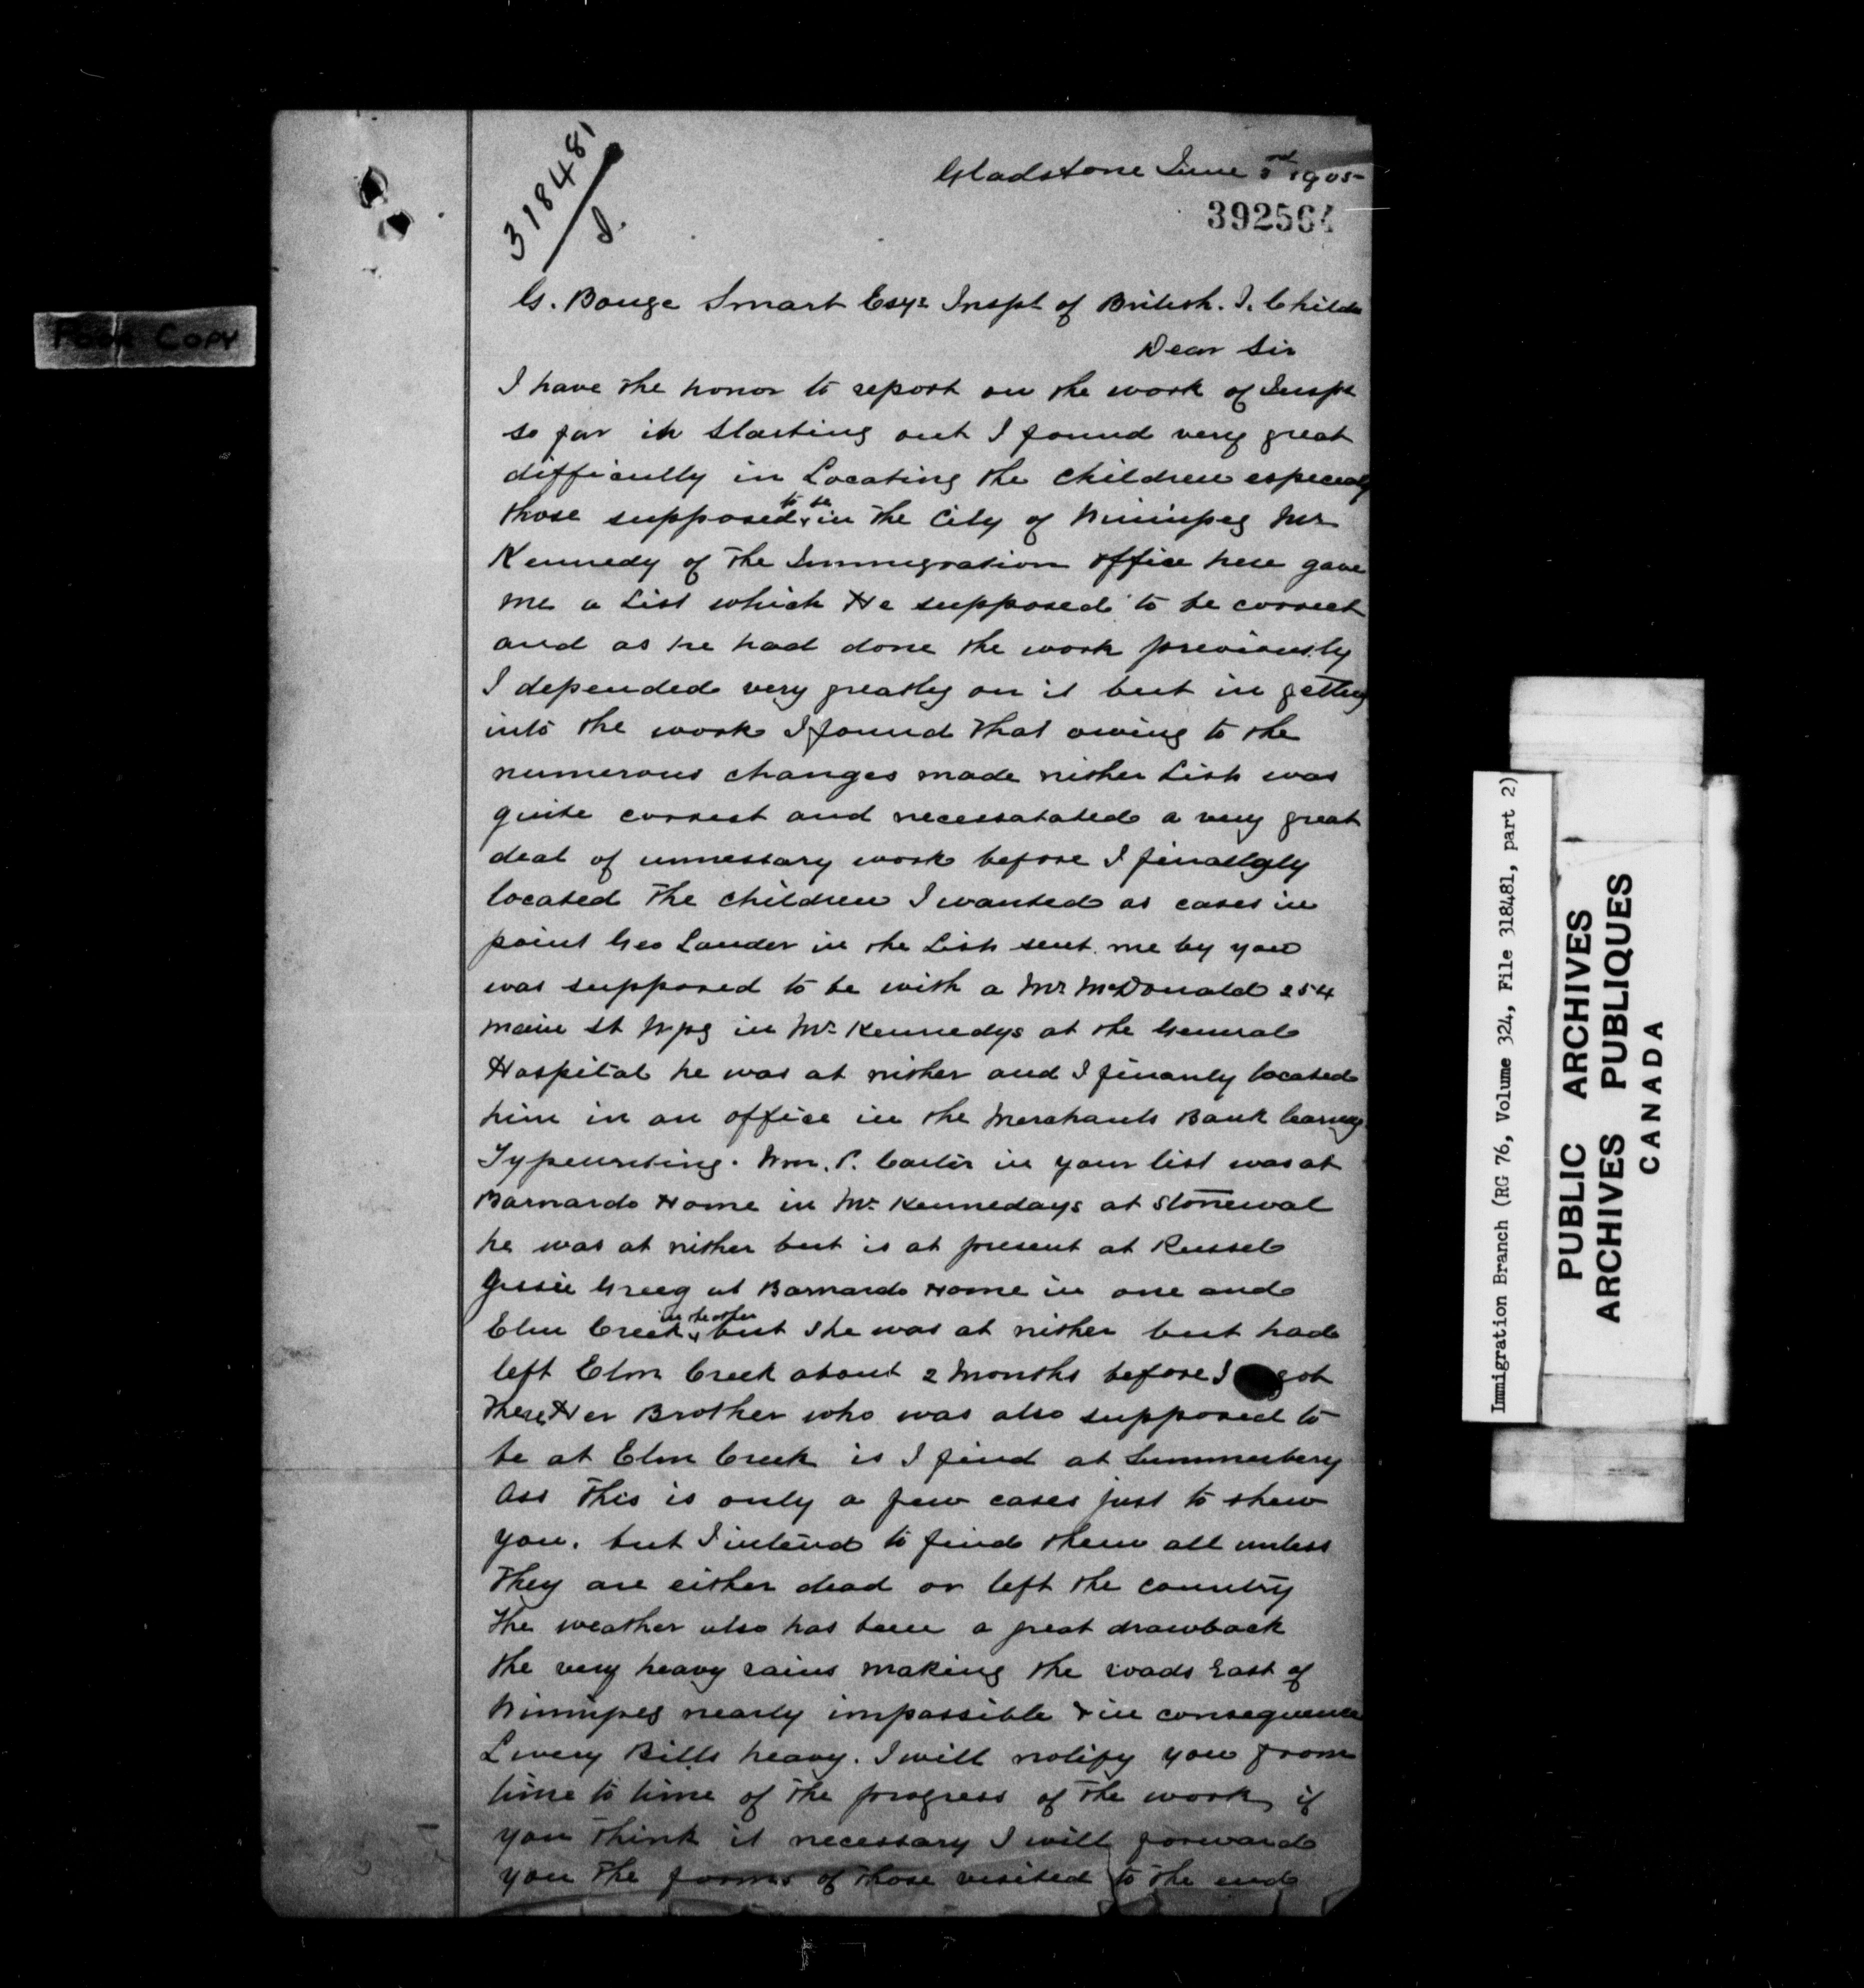 318481
J.
Gladstone June 3rd 1905
392564
G. Bouge Smart Esqr Inspt of British. I. Childn
Dear Sir
I have the honor to report on the work of Inspt
so far in starting out I found very great
difficully in Locating the children especialy
those supposed to be in the City of Winnipeg Mr
Kennedy of the Immigration office here gave
me a List which He supposed to be correct
and as he had done the work previously
I depended very greatly on it but in getting
into the work I found that owing to the
numerous changes made nither List was
quite correct and necessatated a very great
deal of unnessary work before I finallgly
located the children I wanted as cases in
point Geo Lauder in the List sent me by you
was supposed to be with a Mr McDonald 254
main St Wpg in Mr Kennedys at the General
Hospital he was at nither and I finanly located
him in an office in the Merchants Bank learning
Typewriting. Wm. P. Carter in your list was at
Barnardo Home in Mr Kennedays at Stonewal
he was at nither but is at present at Russel
Jessie Greeg at Barnardo Home in one and
Elm Creek in the other but she was at nither but had
left Elm Creek about 2 Months before I got
there Her Brother who was also supposed to
be at Elm Creek is I find at Summerbery
Ass This is only a few cases just to shew
you. but I intend to find them all unless
They are either dead or left the country
The weather also has been a great drawback
the very heavy rains making the roads East of
Winnipeg nearly impassible & in consequence
Livery Bills heavy. I will notify you from
time to time of the progress of the work, if
you think it necessary I will forward
you the forms of those visited to the end
Poor Copy
Immigration Branch (RG 76, Volume 324, File 318481, part 2)
PUBLIC ARCHIVES
ARCHIVES PUBLIQUES
CANADA